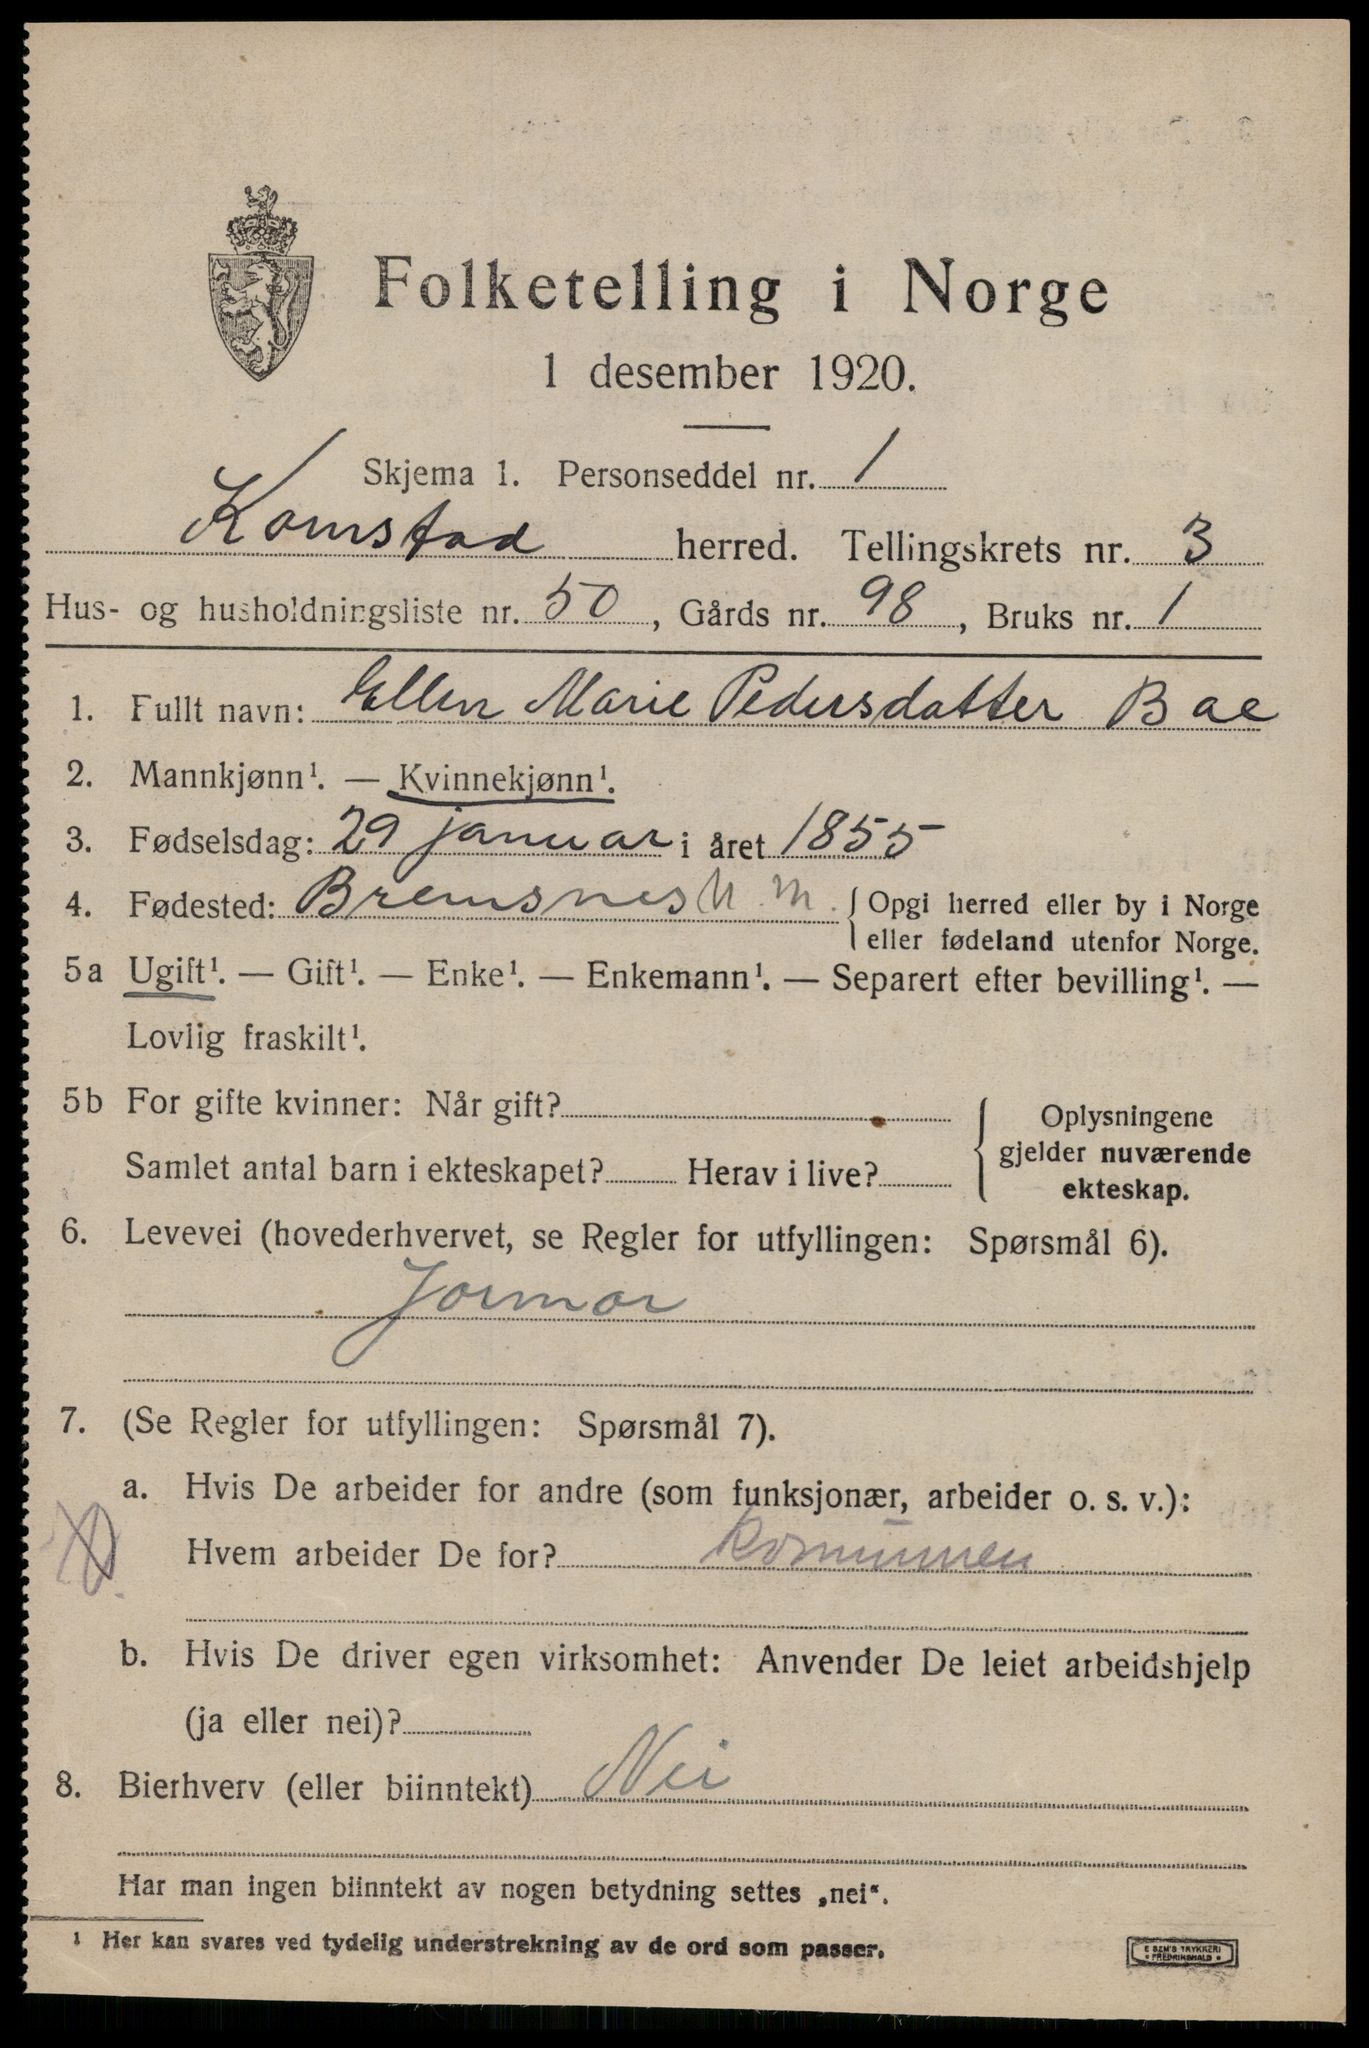 Folketelling i Norge
1 desember 1920.
Skjema 1. Personseddel nr. 1
Kornstad herred. Tellingskrets nr. 3
Hus- og husholdningsliste nr. 50, Gårds nr. 98, Bruks nr. 1
1. Fullt navn: Ellen Marie Pedersdatter Bae
2. Mannkjønn¹. — Kvinnekjønn¹.
3. Fødselsdag: 29 januar i året 1855
4. Fødested: Bremsnes N. M. Opgi herred eller by i Norge
eller fødeland utenfor Norge.
5a Ugift¹. — Gift¹. — Enke¹. — Enkemann¹. — Separert efter bevilling¹. —
Lovlig fraskilt¹.
5b For gifte kvinner: Når gift?
Samlet antal barn i ekteskapet? Herav i live?
Oplysningene
gjelder nuværende
ekteskap.
6. Levevei (hovederhvervet, se Regler for utfyllingen: Spørsmål 6).
Jormor
7. (Se Regler for utfyllingen: Spørsmål 7).
a. Hvis De arbeider for andre (som funksjonær, arbeider o. s. v.):
Hvem arbeider De for? Komunnen
b. Hvis De driver egen virksomhet: Anvender De leiet arbeidshjelp
(ja eller nei)?
8. Bierhverv (eller biinntekt) Nei
Har man ingen biinntekt av nogen betydning settes „nei“.
¹ Her kan svares ved tydelig understrekning av de ord som passer.
E SEM'S TRYKKERI
FREDRIKSHALD